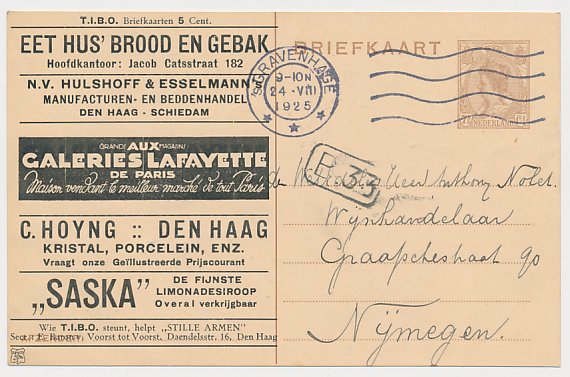 T.I.B.O. Briefkaarten 5 Cent.
EET HUS' BROOD EN GEBAK
Hoofdkantoor: Jacob Catsstraat 182
N.V. HULSHOFF & ESSELMANN
MANUFACTUREN- EN BEDDENHANDEL
DEN HAAG - SCHIEDAM
GRANDS AUX MAGASINS
GALERIES LAFAYETTE
DE PARIS
Maison vendant le meilleur marché de tout Paris
C. HOYNG :: DEN HAAG
KRISTAL, PORCELEIN, ENZ.
Vraagt onze Geïllustreerde Prijscourant
„SASKA”
DE FIJNSTE
LIMONADESIROOP
Overal verkrijgbaar
Wie T.I.B.O. steunt, helpt „STILLE ARMEN”
Secr. E. Baronv. Voorst tot Voorst, Daendelsstr. 16, Den Haag
BRIEFKAART
NEDERLAND
'S GRAVENHAGE
9-10N
24 · VIII
1925
B 33
Anthony Nolet
Wynhandelaar
90
Nijmegen.